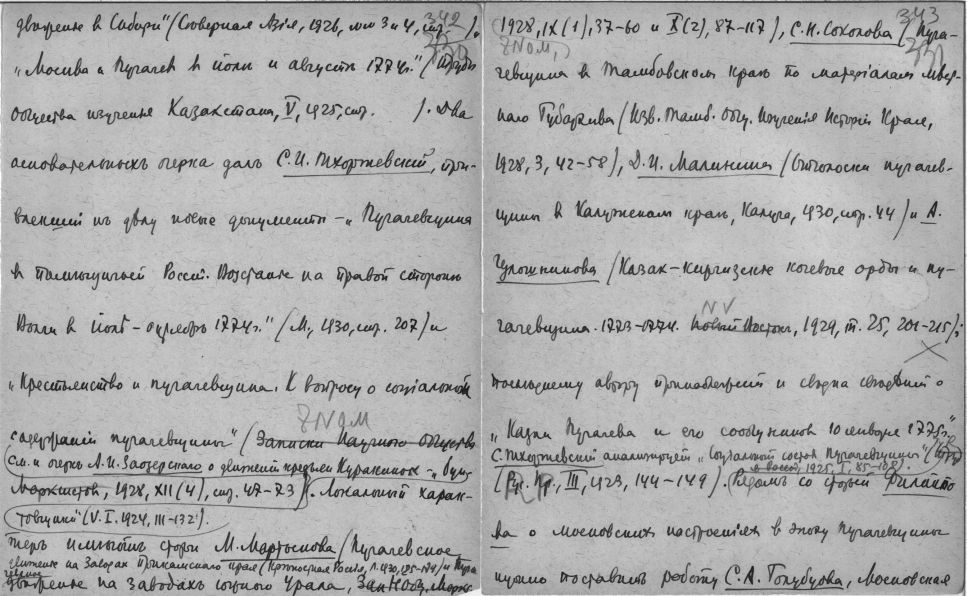 342
движенiе в Сибири" (Северная Азiя, 1926, №№ 3 и 4, стр. ),
„Москва и Пугачев в iюлѣ и августѣ 1774 г." (Труды
Общества изученiя Казахстана, V, 1925, стр. ). Два
основательныхъ очерка далъ С.И. Тхоржевский, при-
влекший къ дѣлу новые документы – „Пугачевщина
в помѣщичьей России. Возстанiе на правой сторонѣ
Волги в iюнѣ–октябрѣ 1774 г." (М., 1930, стр. 207) и
„Крестьянство и пугачевщина. К вопросу о социальном
ZNOM
содержании пугачевщины" (Записки Научного Общества
см. и очерк А.И. Заозерского о движении крестьян Куракиных –
Марксистов, 1928, XII (4), стр. 47–73). Локальный харак-
(V. I. 1924, 111–132).
теръ имѣютъ статьи М. Мартынова (Пугачевское
движенiе на заводах Прикамского края (Крепостная Россiя, Л. 1930,
движенiе на заводахъ южного Урала,
343
1928, IX (1), 37–60 и X (2), 87–117), С.Н. Соколова (Пуга-
ZNOM,
чевщина в Тамбовском краѣ по матерiалам
Губарева (Изв. Тамб. Общ. Изученiя Исторiи Края,
1928, 3, 42–58), Д.И. Малинина (Отголоски пугачев-
щины в Калужском краѣ, Калуга, 1930, стр. 44) и А.
Чулошникова (Казак-киргизские кочевые орды и пу-
NV
гачевщина. 1773–1774. Новый Восток, 1929, т. 25, 201–215);
послѣднему автору принадлежит и сводка свѣдѣний о
„Казни Пугачева и его сообщников 10 января 1775 г."
С. Тхоржевский анализирует „Социальный состав Пугачевщины" (Труд
в России, 1925, I, 85–108).
III, 1923, 144–149). Рядомъ со статьей Филиппо
ва о московских настроенiях в эпоху пугачевщины
нужно поставить работу С.А. Голубцова, Московская